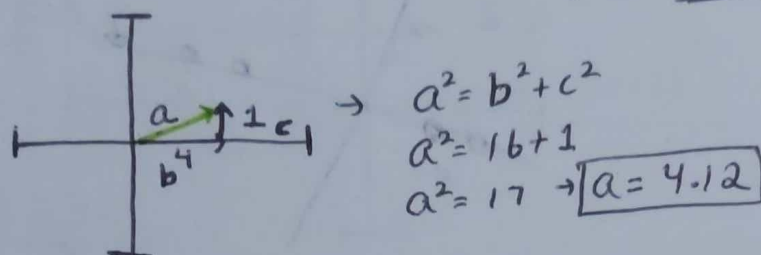 a 1 c
b 4
→ a² = b² + c²
a² = 16 + 1
a² = 17 → a = 4.12